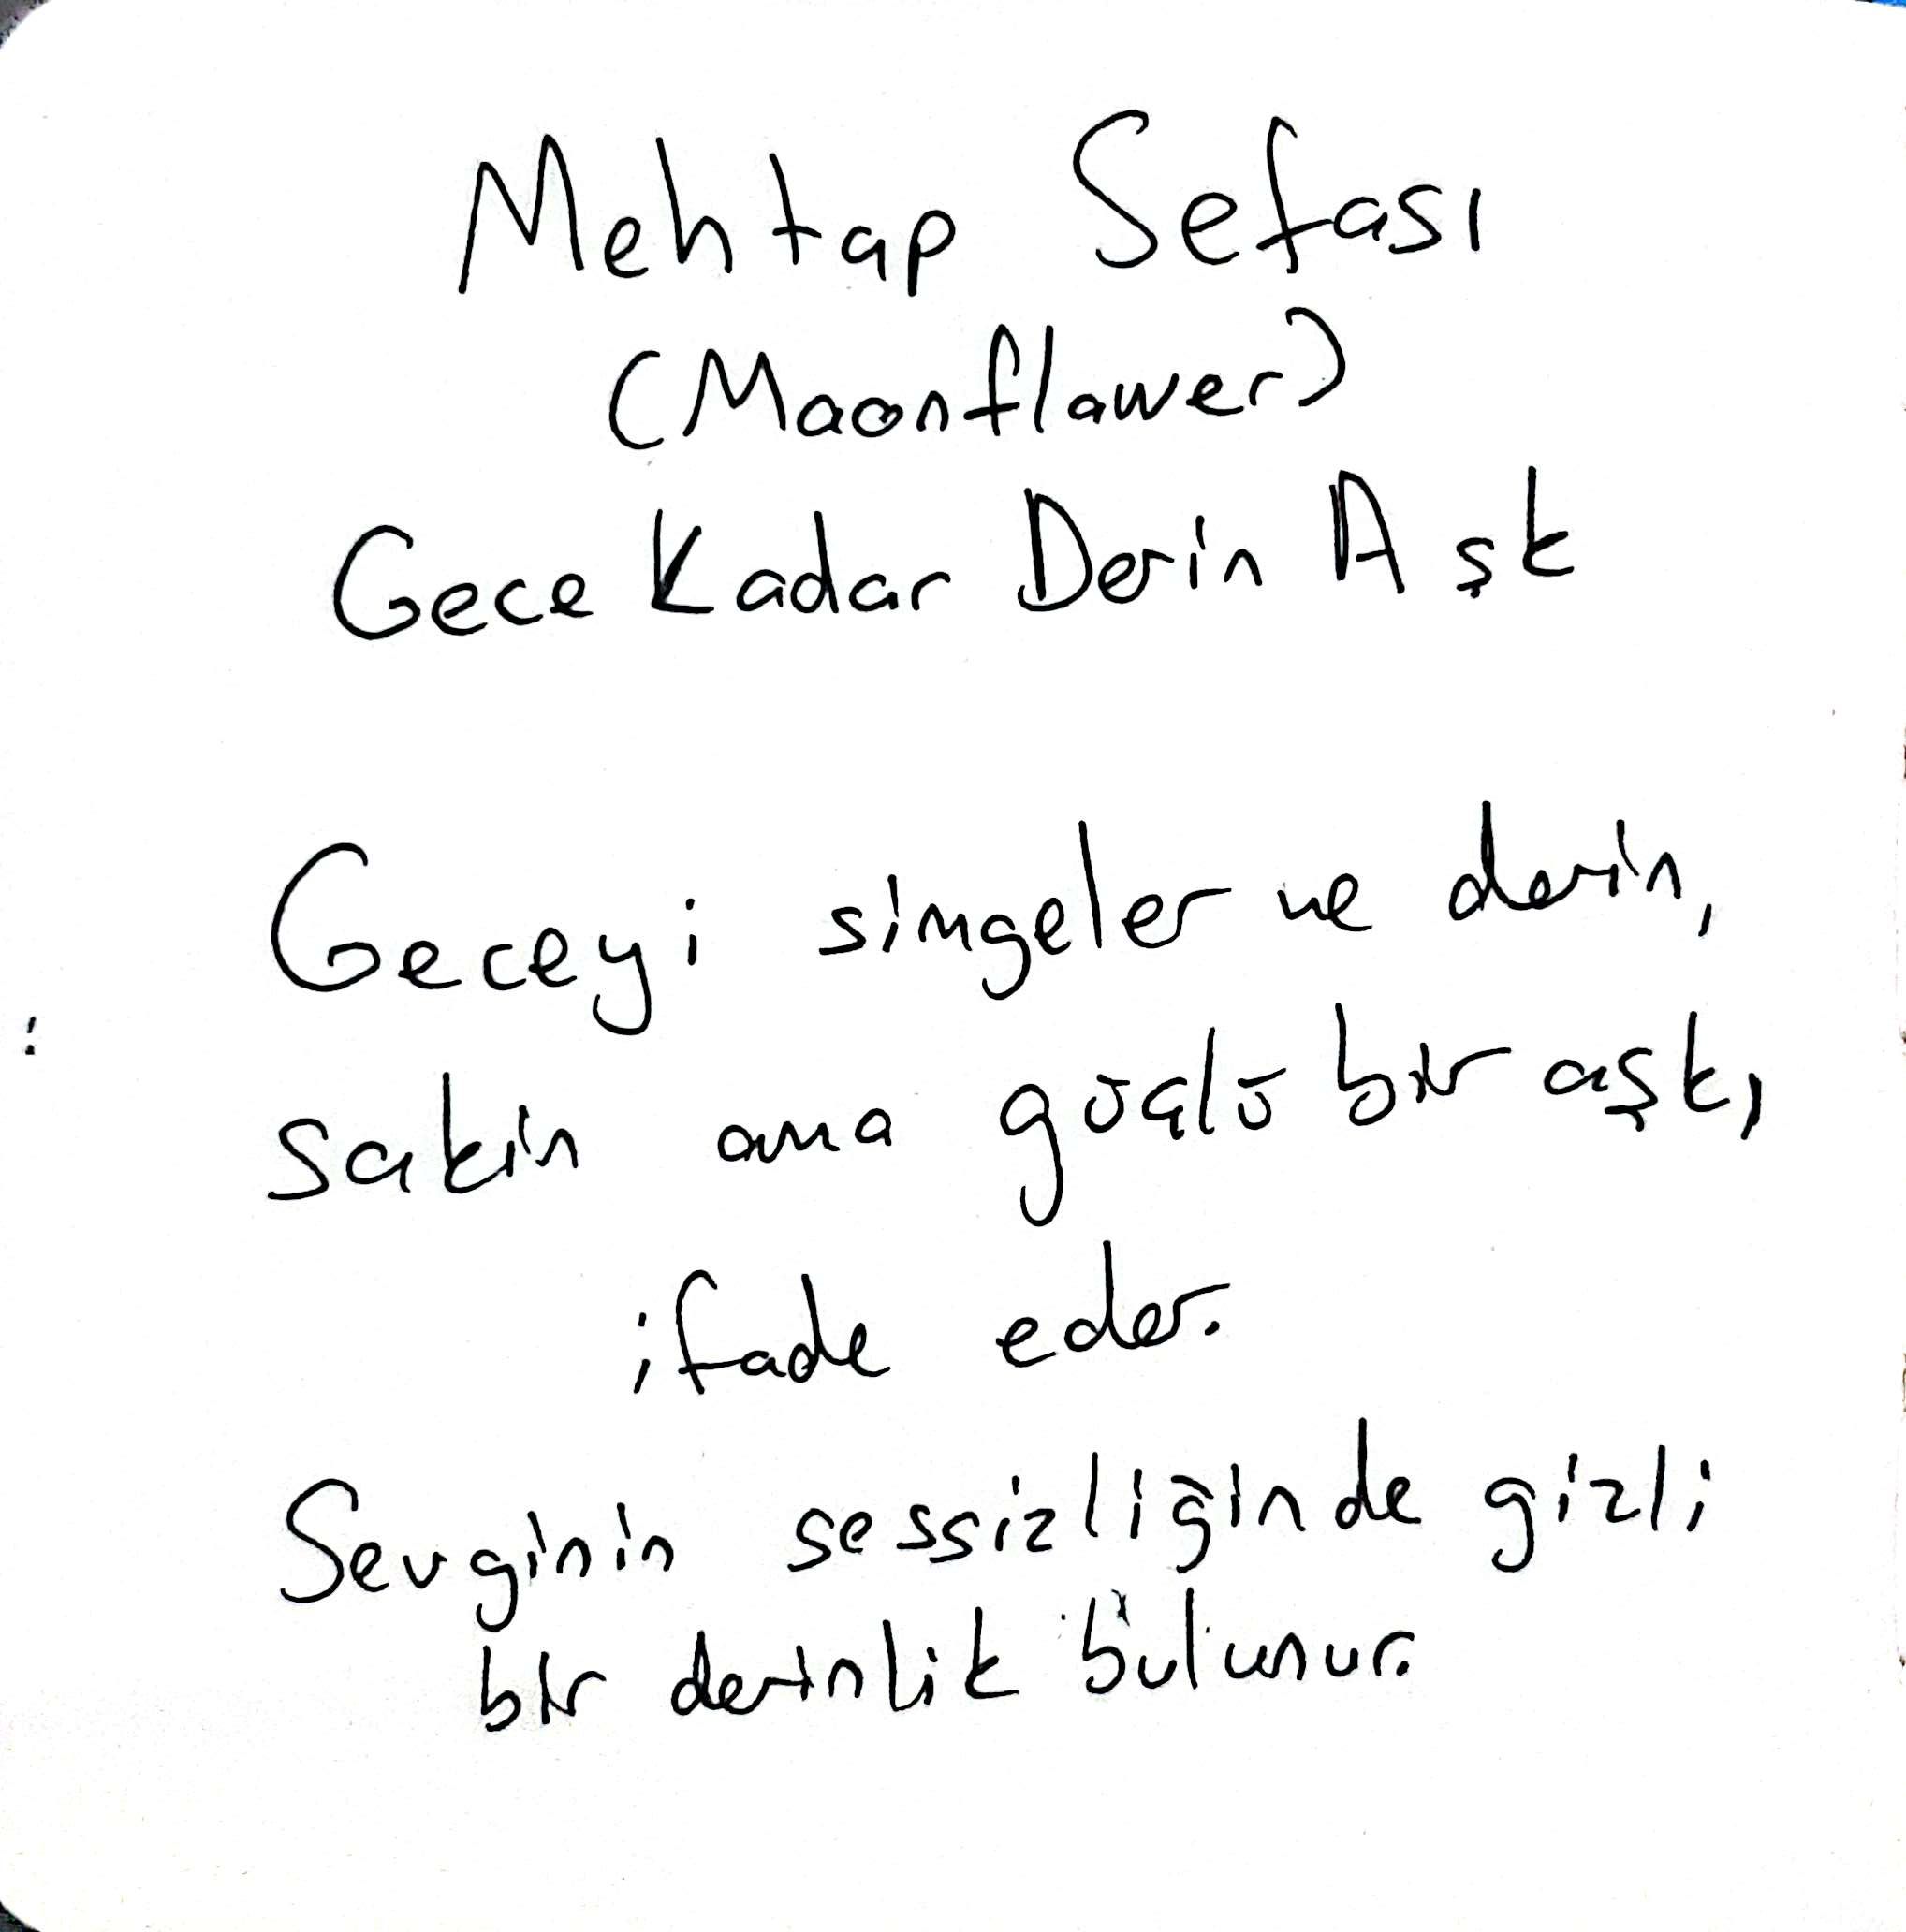 Mehtap Sefası
(Maonflawer)
Gece Kadar Derin Aşk
Geceyi simgeler ve derin,
sakin ama güçlü bir aşkı
ifade eder.
Sevginin sessizliğinde gizli
bir derinlik bulunur.